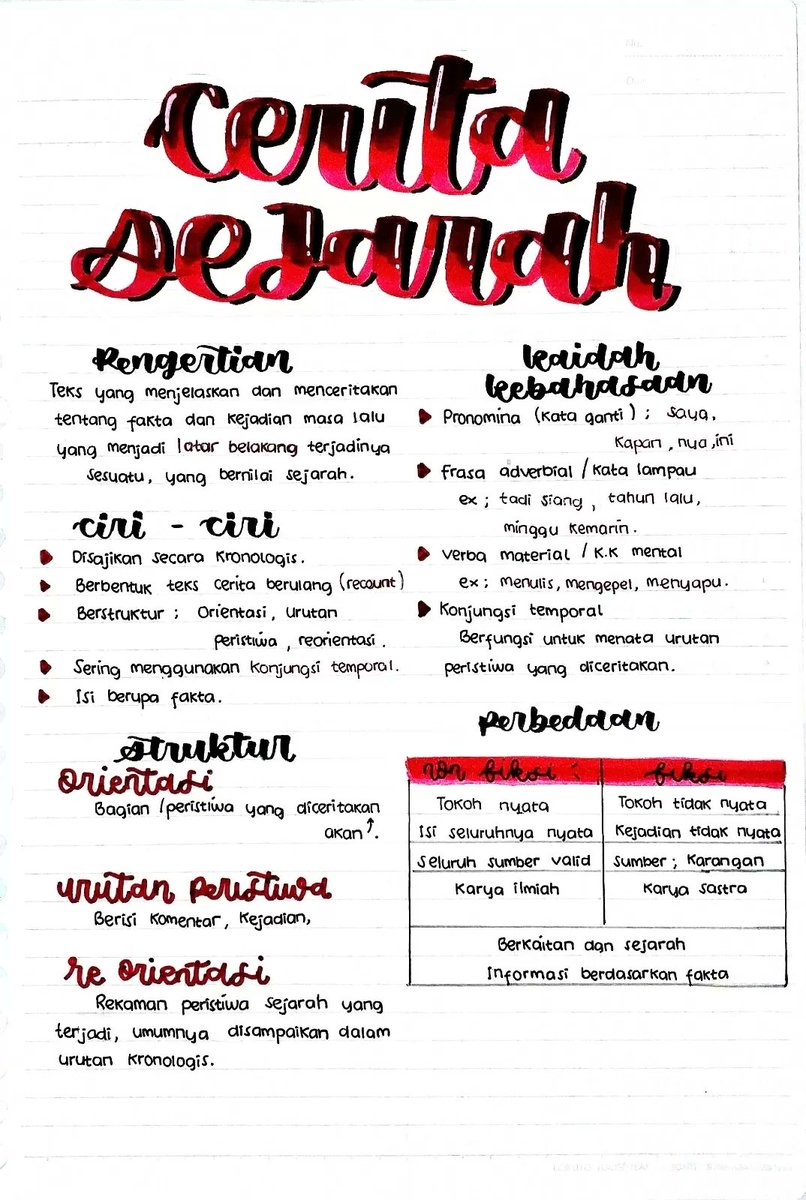 cerita
sejarah
Pengertian
Teks yang menjelaskan dan menceritakan
tentang fakta dan kejadian masa lalu
yang menjadi latar belakang terjadinya
sesuatu, yang bernilai sejarah.
ciri - ciri
Disajikan secara kronologis.
Berbentuk teks cerita berulang (recount)
Berstruktur ; Orientasi, urutan
peristiwa, reorientasi.
Sering menggunakan konjungsi temporal.
Isi berupa fakta.
struktur
orientasi
Bagian /peristiwa yang diceritakan
akan↑.
urutan peristiwa
Berisi komentar, kejadian,
re orientasi
Rekaman peristiwa sejarah yang
terjadi, umumnya disampaikan dalam
urutan kronologis.
kaidah
kebahasaan
Pronomina (kata ganti) ; saya,
kapan, nya, ini
Frasa adverbial / kata lampau
ex ; tadi siang, tahun lalu,
minggu kemarin.
Verba material / K.K mental
ex ; menulis, mengepel, menyapu.
Konjungsi temporal
Berfungsi untuk menata urutan
peristiwa yang diceritakan.
perbedaan
non fiksi : fiksi
Tokoh nyata Tokoh tidak nyata
Isi seluruhnya nyata Kejadian tidak nyata
Seluruh sumber valid sumber ; Karangan
Karya ilmiah Karya sastra
Berkaitan dgn sejarah
Informasi berdasarkan fakta